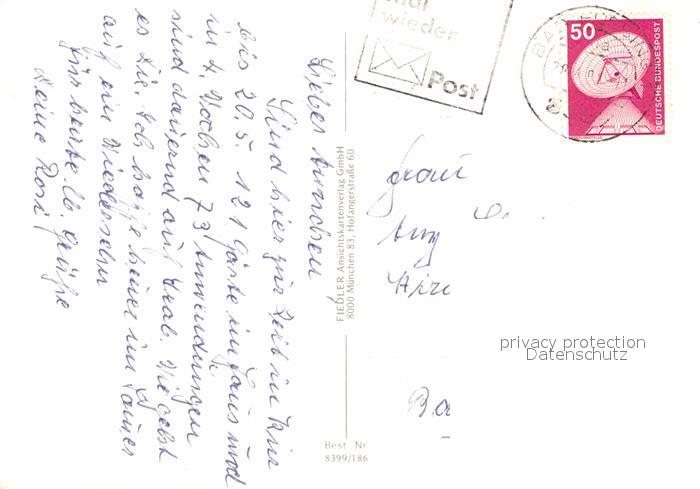 mal
wieder
Post
50
DEUTSCHE BUNDESPOST
Liebes Annchen
Sind hier zur Zeit in Kur
bis 20.5. 121 Gäste im Haus und
in 4. Wochen 73 Anwendungen
sind dauernd auf Trab. Wie gehst
es Dir. Ich hoffe
auf ein Wiedersehn
für heute lb. Grüße
Deine Rosi
FIEDLER Ansichtskartenverlag GmbH
8000 München 83, Hofangerstraße 60
Best Nr
8399/186
Frau
Ba
privacy protection
Datenschutz